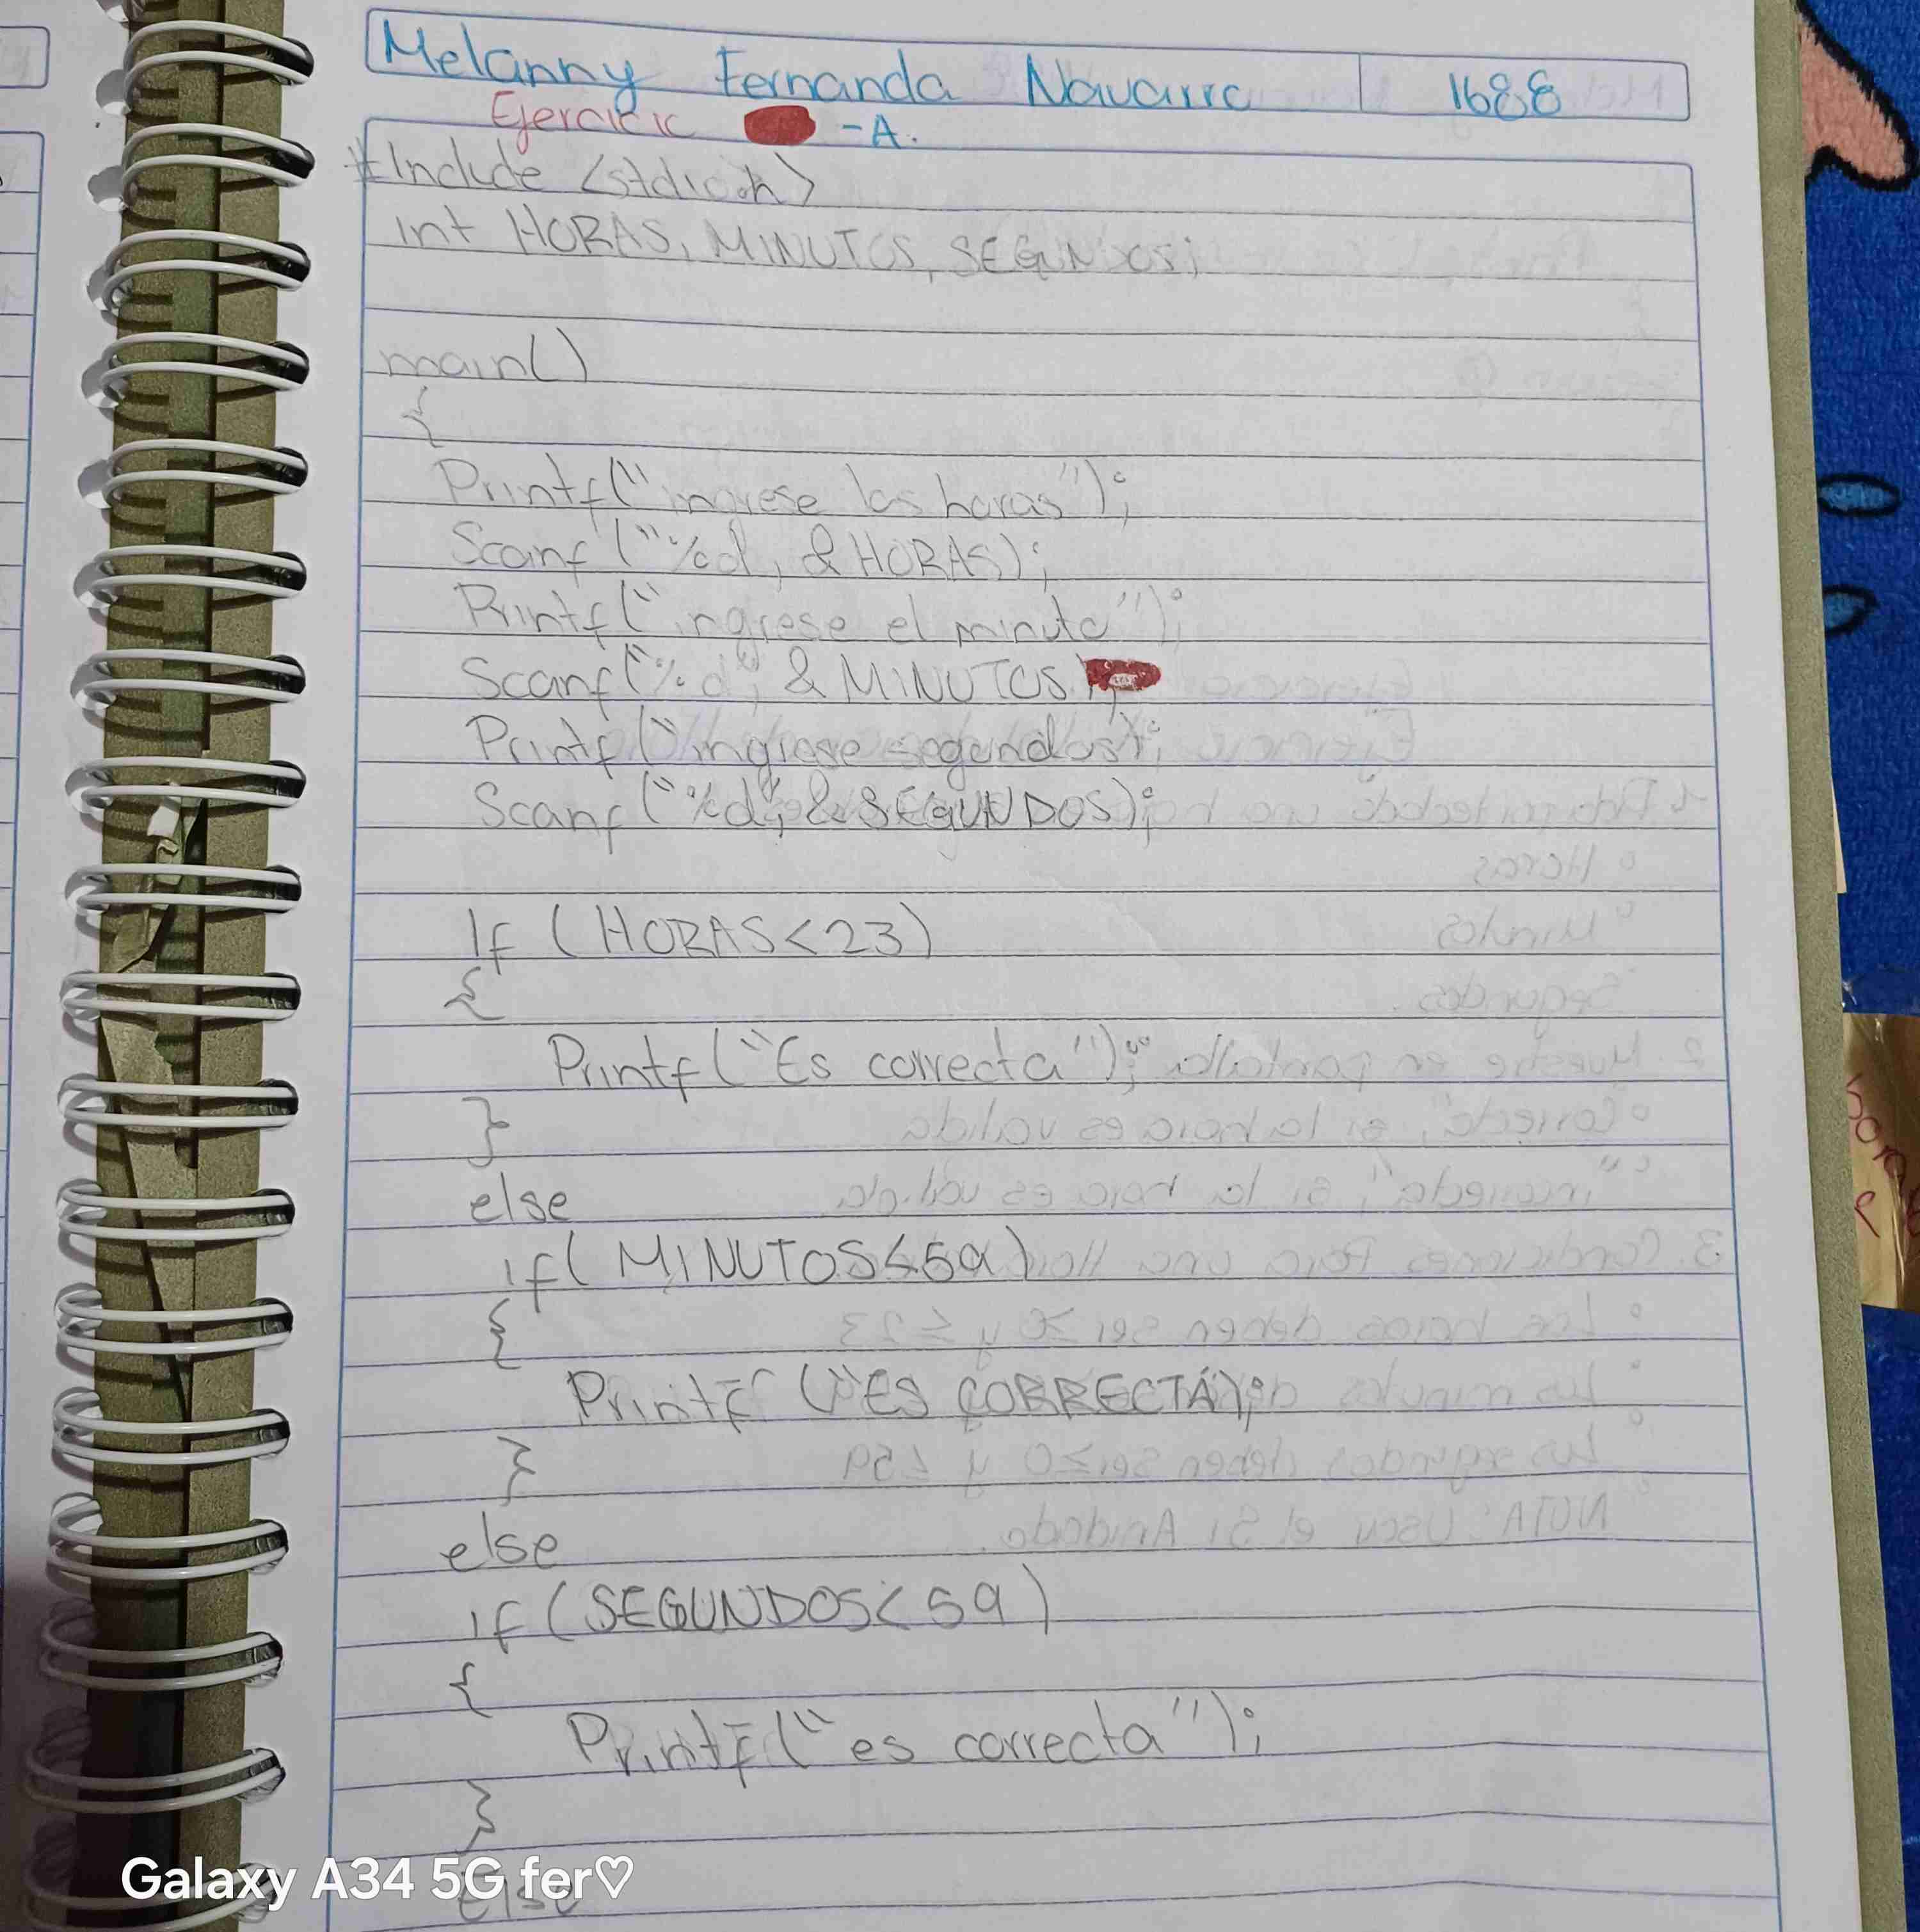 Melanny Fernanda Navarro 1688
Ejercicio -A.
#Include <stdio.h>
int HORAS, MINUTOS, SEGUNDOS;
main()
{
Printf("ingrese las horas");
Scanf ("%d, &HORAS);
Printf("ingrese el minuto");
Scanf("%d", & MINUTOS);
Printf ("ingrese segundos");
Scanf ("%d", & SEGUNDOS);
If (HORAS<23)
{
Printf("Es correcta");
}
else
if( MINUTOS<59)
{
Printf ("ES CORRECTA);
}
else
if (SEGUNDOS< 59)
{
Printf("es correcta");
}
Else
Galaxy A34 5G fer♡